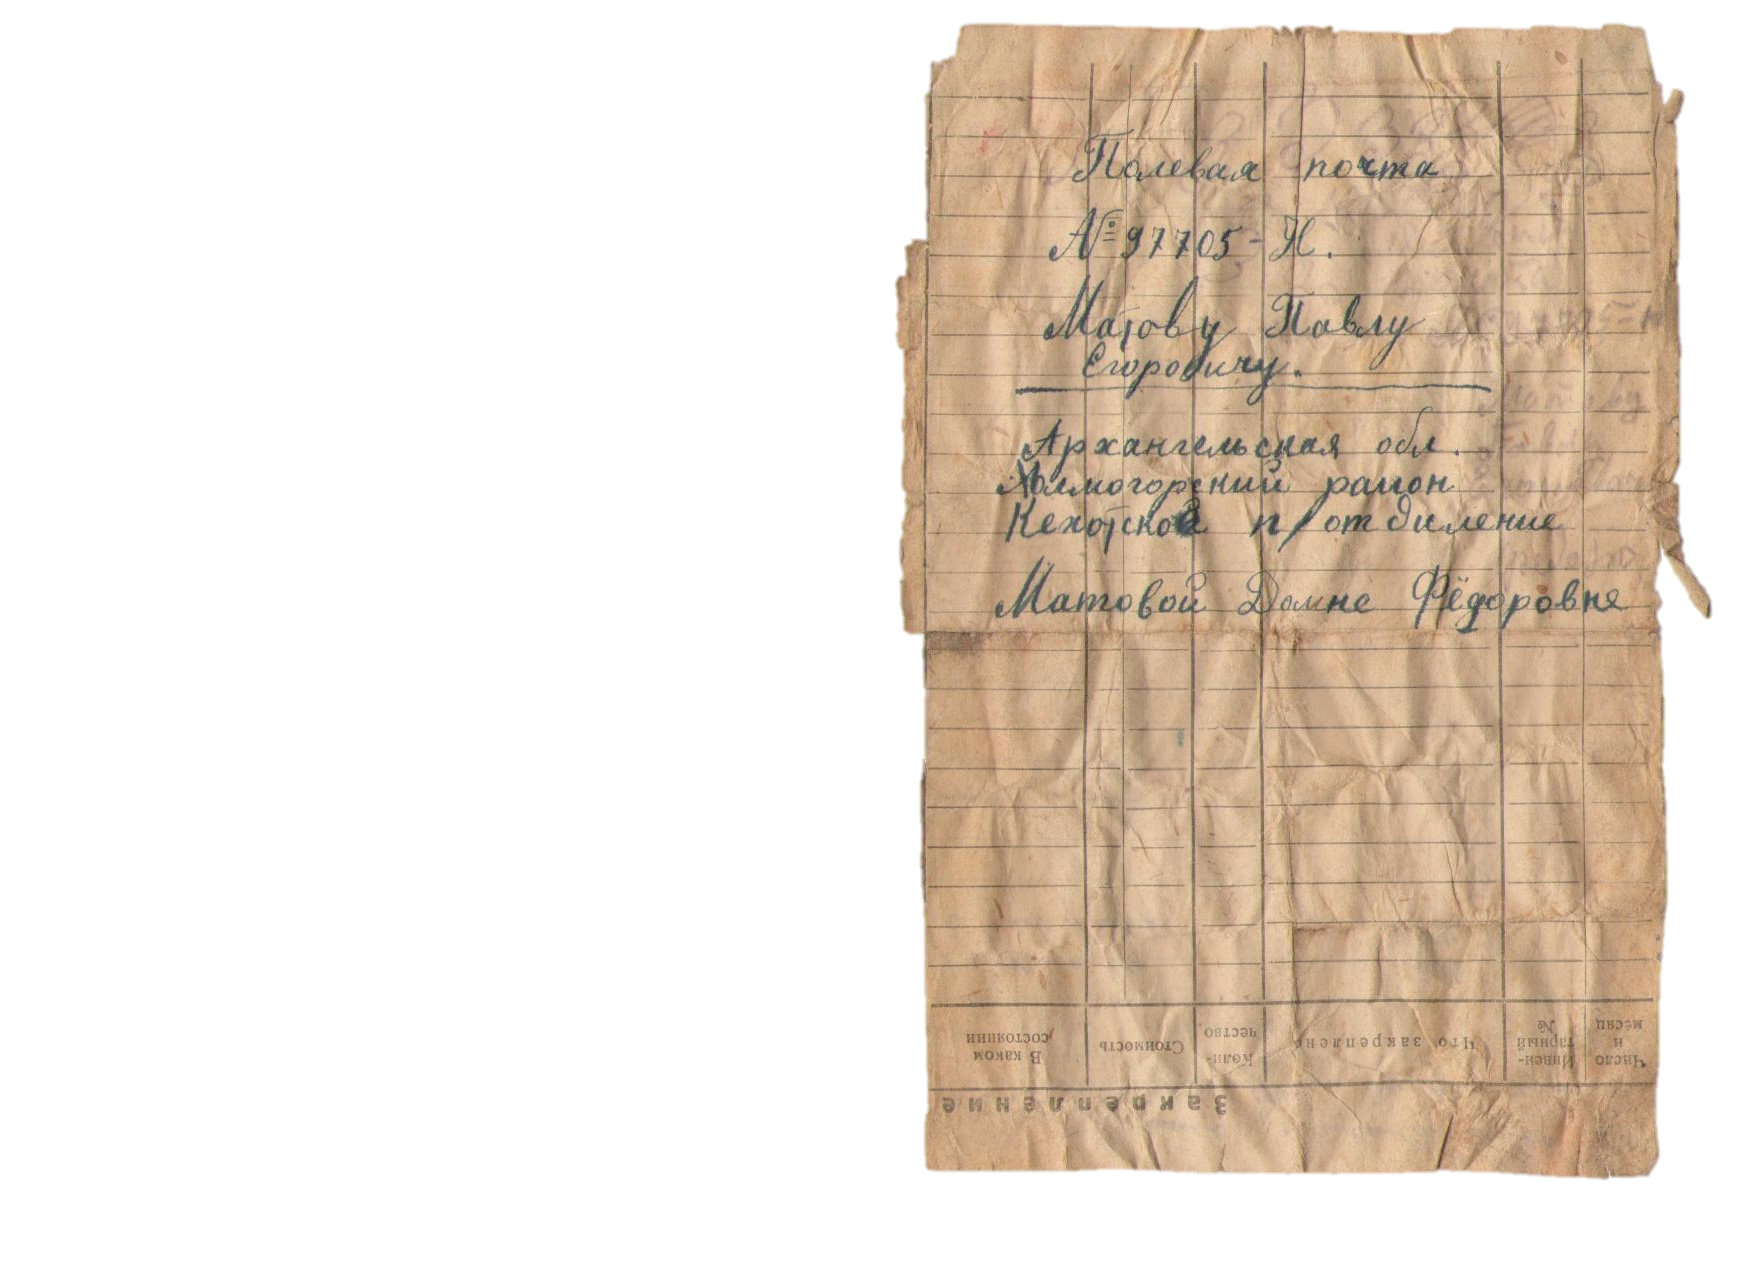 Полевая почта
№ 97705-Н.
Матову Павлу
Егоровичу.
Архангельская обл.
Холмогорский раион
Кехотской п/отдиление
Матовой Домне Фёдоровне
Закрепление
Число и месяц
Инвентарный №
Что закреплено
Коли-
чество
Стоимость
В каком
состоянии